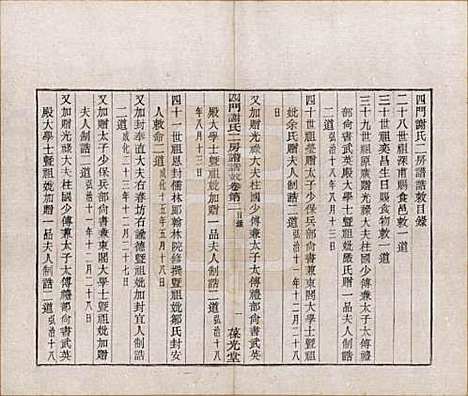 四門謝氏二房譜誥敕目錄
二十八世祖深甫賜食邑敕一道
三十八世祖奕昌生日賜物敕一道
三十九世祖原廣贈光祿大夫柱國少傅兼太子太傅禮
部尚書武英殿大學士暨祖妣嚴氏贈一品夫人制誥
二道弘治十八年八月十三日
四十世祖瑩贈太子少保兵部尚書兼東閣大學士暨祖
妣余氏贈夫人制誥二道弘治十一年十二月二十八
日
又加贈光祿大夫柱國少傅兼太子太傅禮部尚書武英
四門謝氏二房譜誥敕卷第二
目錄
一
葆光堂
殿大學士暨祖妣加贈一品夫人制誥二道弘治十八
年八月十三日
四十一世祖恩封儒林郎翰林院修撰暨祖妣鄒氏封安
人敕命二道成化十五年五月十八日
又加封奉直大夫右春坊右諭德暨祖妣加封宜人制誥
二道成化二十三年十二月二十七日
又加贈太子少保兵部尚書兼東閣大學士暨祖妣加贈
夫人制誥二道弘治十一年十二月二十八日
又加贈光祿大夫柱國少傅兼太子太傅禮部尚書武英
殿大學士暨祖妣加贈一品夫人制誥二道弘治十八